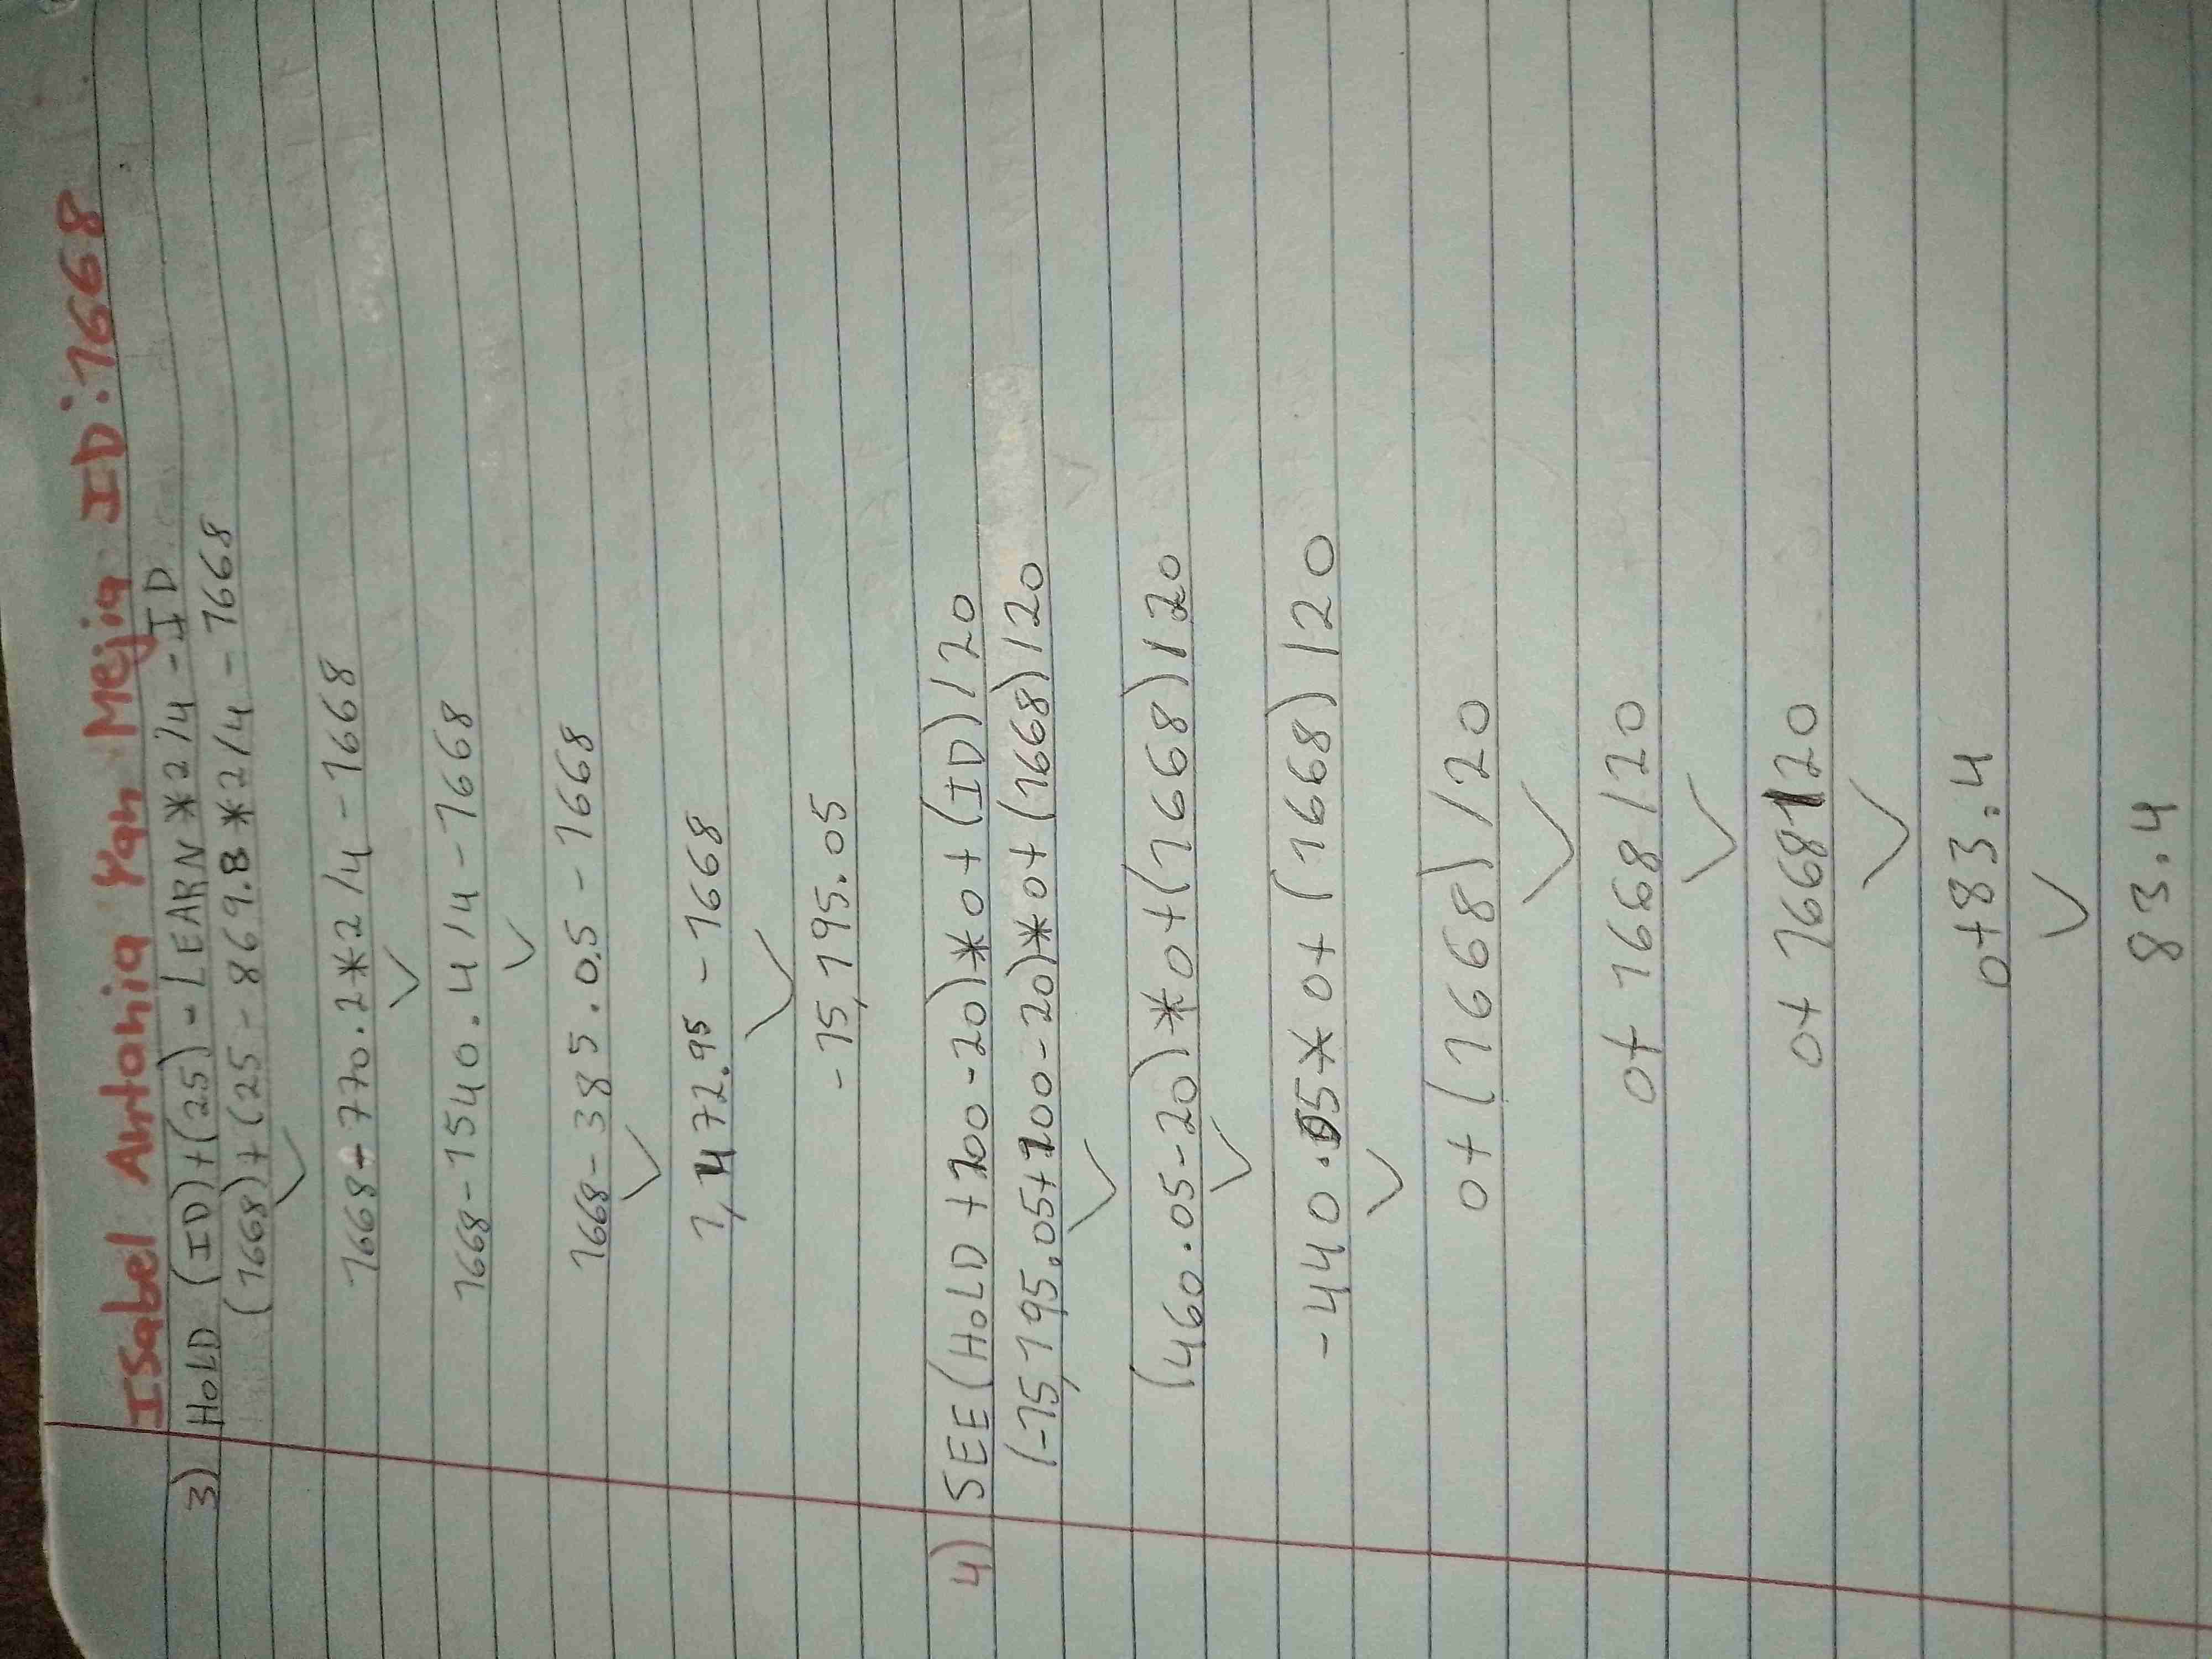 Isabel Antonia Yan Mejia ID: 1668
3) HOLD (ID)+(25)-LEARN*2/4-ID
(1668)+(25-869.8*2/4-1668
1668+770.2*2/4-1668
1668-1540.4/4-1668
1668-385.05-1668
1,472.95-1668
-15,195.05
4) SEE(HOLD+100-20)*0+(ID)/20
(-15,195.05+100-20)*0+(1668)/20
(460.05-20)*0+(1668)/20
-440.05*0+(1668)/20
0+(1668)/20
0+1668/20
0+1668/20
0+83.4
83.4